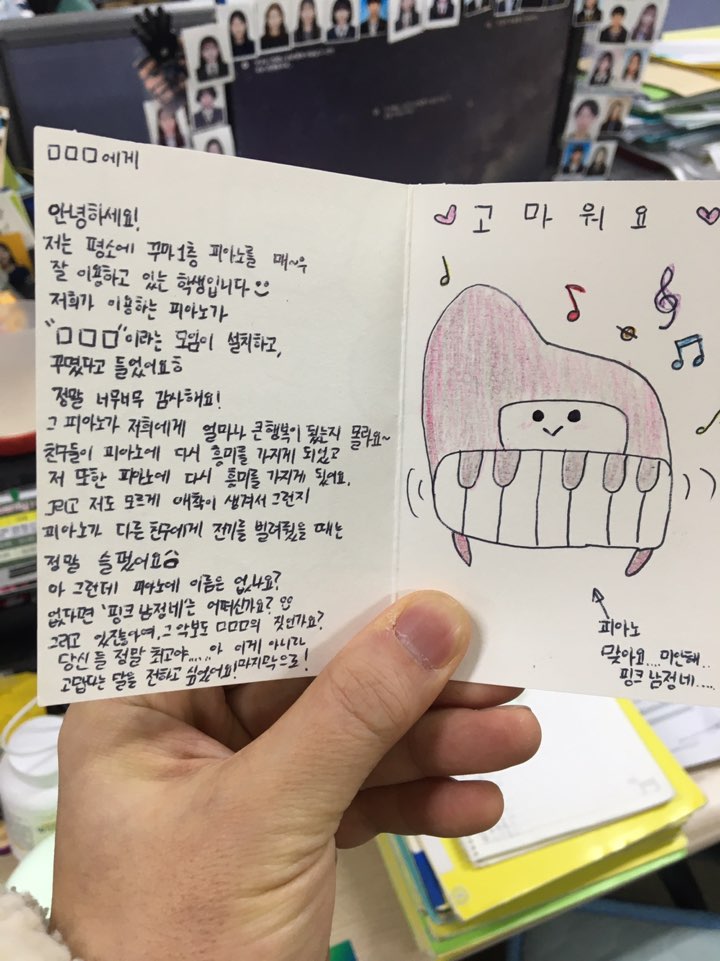 □□□에게
안녕하세요!
저는 평소에 꾸마 1층 피아노를 매~우
잘 이용하고 있는 학생입니다
저희가 이용하는 피아노가
"□□□"이라는 모임이 설치하고,
꾸몄다고 들었어요ㅎ
정말 너무너무 감사해요!
그 피아노가 저희에게 얼마나 큰 행복이 됬는지 몰라요~
친구들이 피아노에 다시 흥미를 가지게 되었고
저 또한 피아노에 다시 흥미를 가지게 됬어요.
그리고 저도 모르게 애착이 생겨서 그런지
피아노가 다른 친구에게 전기를 빌려줬을 때는
정말 슬펐어요
아 그런데 피아노에 이름은 없나요?
없다면 '핑크 남정네'는 어떠신가요?
그리고 있잖아여, 그 악보도 □□□의 짓인가요?
당신들 정말 최고야..... 아 이게 아니라
고맙다는 말을 전하고 싶었어요! 마지막으로!
고 마 워 요
피아노
맞아요.... 미안해..
핑크 남정네.....